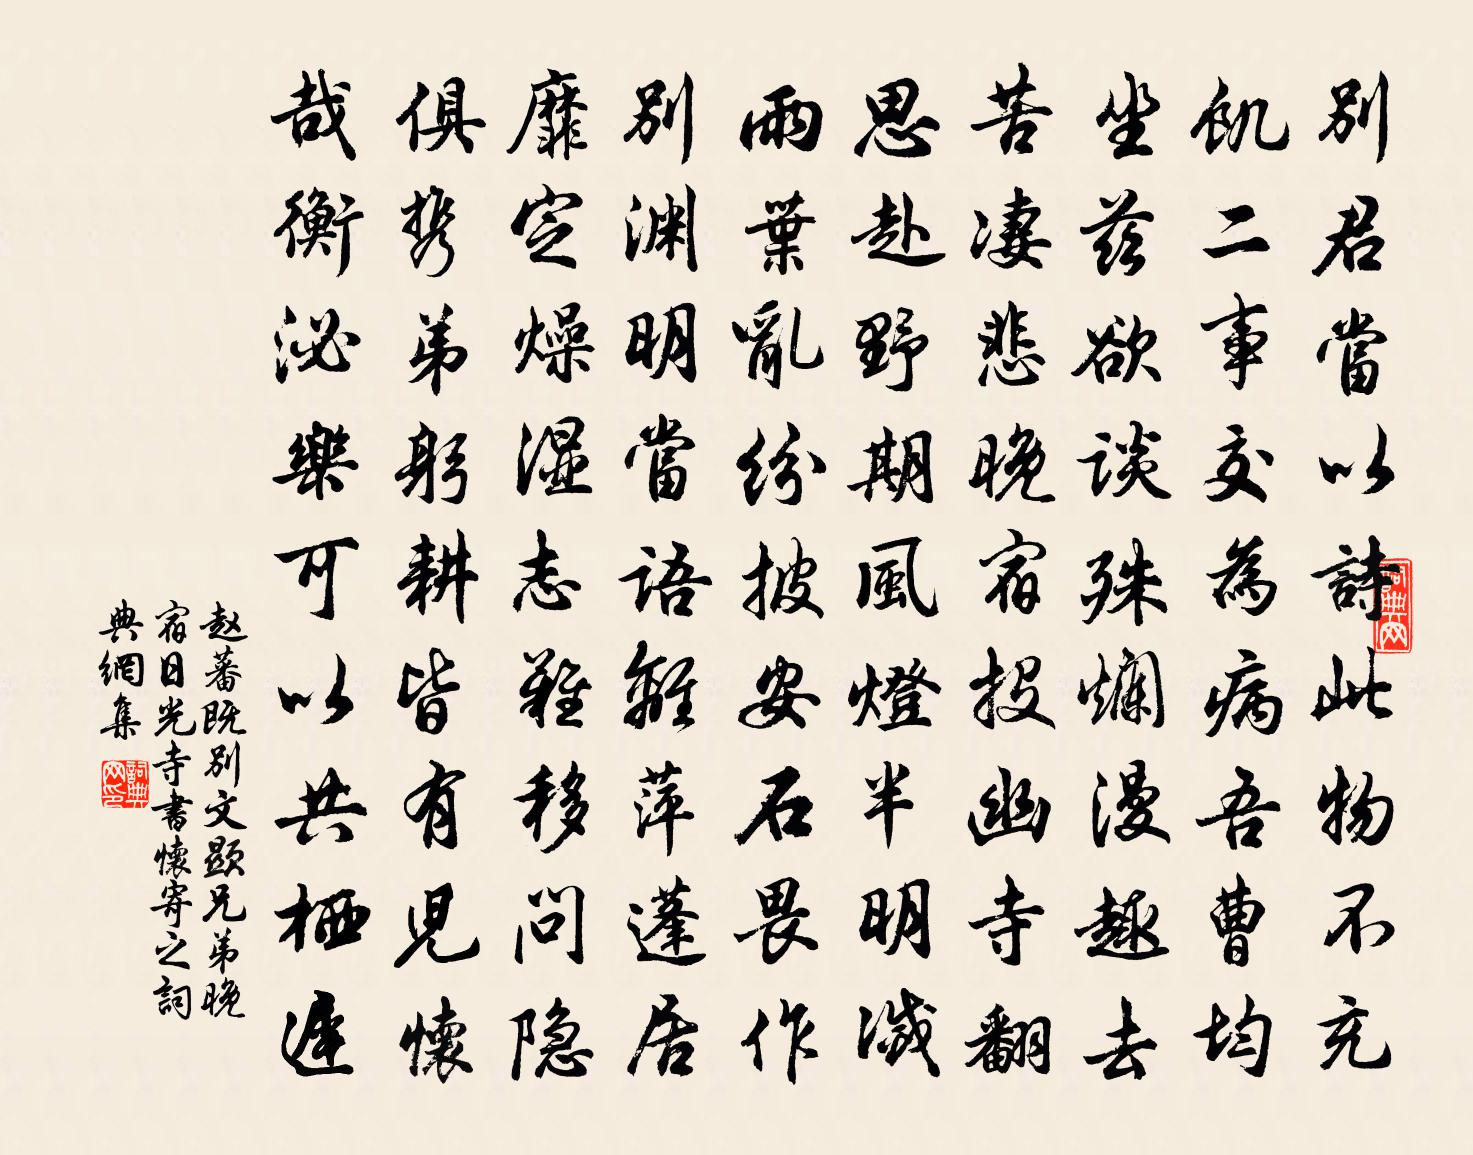 別君當以詩此物不充
飢二事交為病吾曹均
坐茲欲談殊爛漫趣去
苦淒悲晚宿投幽寺翻
思赴野期風半明燈滅
雨葉亂紛披安石畏作
別淵明當語離萍蓬居
靡定燥濕志難移問隐
俱携弟躬耕皆有児懷
哉衡泌樂可以共栖遲
赵蕃既别文顯兄弟晚
宿日光寺書懷寄之詞
典網集